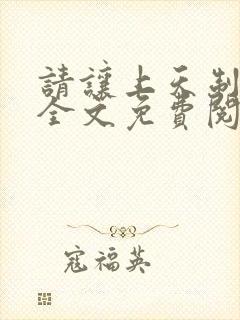 請讓上天制
全文免費閱
寇福英